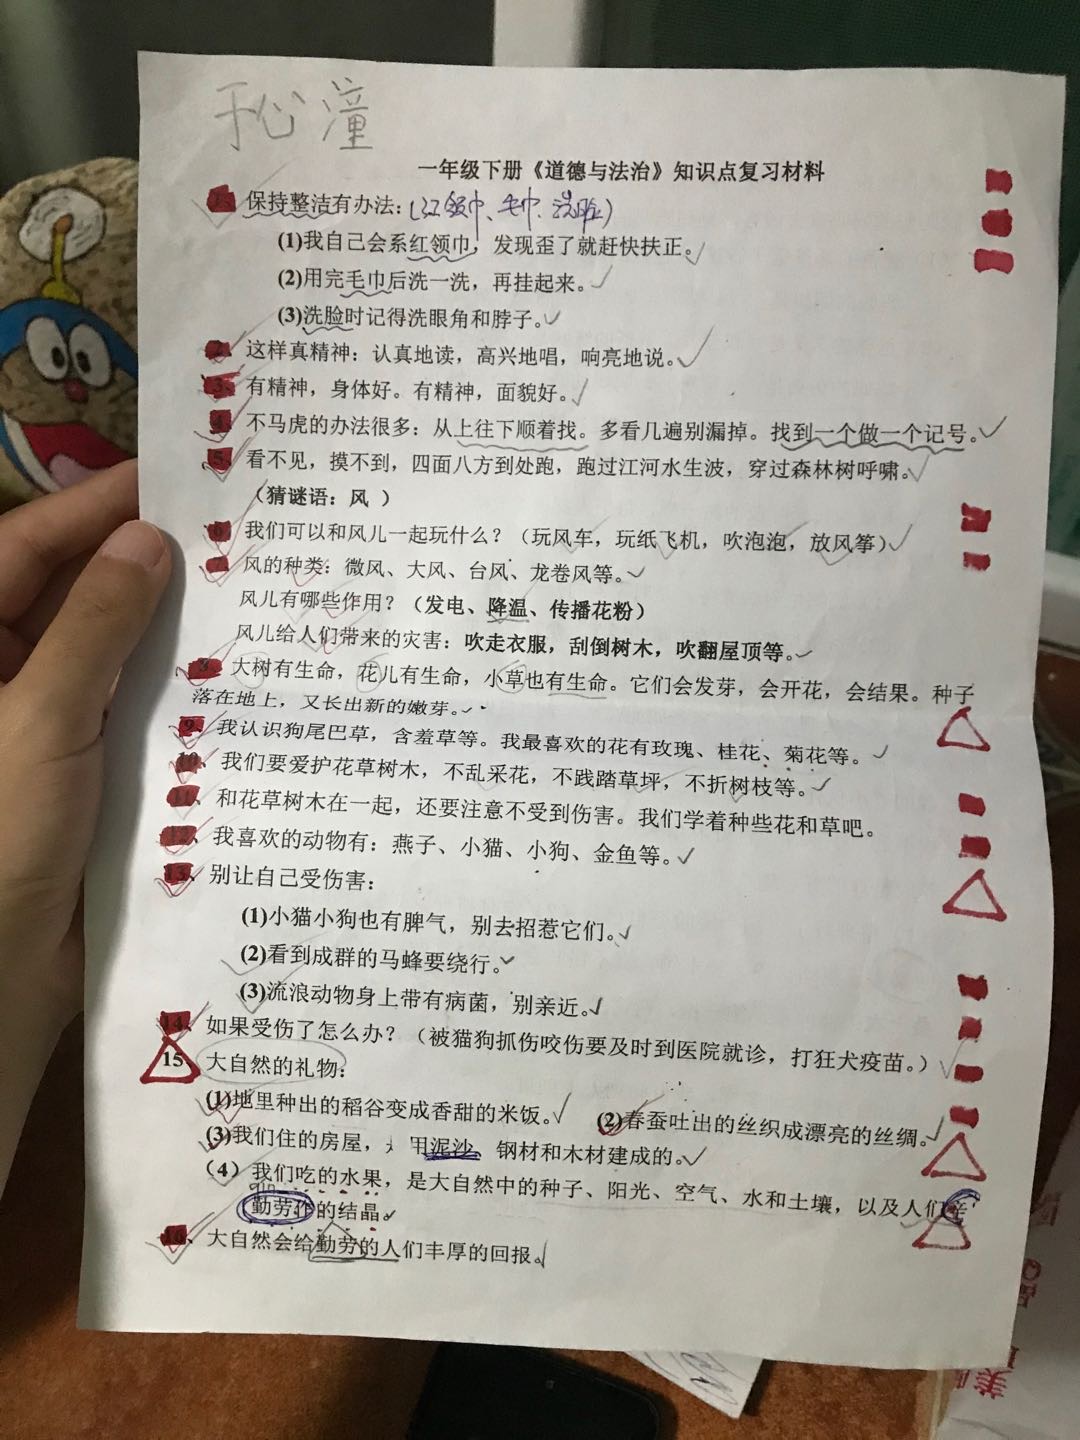 于心潼
一年级下册《道德与法治》知识点复习材料
1、保持整洁有办法:(红领巾、毛巾、洗脸)
(1)我自己会系红领巾,发现歪了就赶快扶正。
(2)用完毛巾后洗一洗,再挂起来。
(3)洗脸时记得洗眼角和脖子。
2、这样真精神:认真地读,高兴地唱,响亮地说。
3、有精神,身体好。有精神,面貌好。
4、不马虎的办法很多:从上往下顺着找。多看几遍别漏掉。找到一个做一个记号。
5、看不见,摸不到,四面八方到处跑,跑过江河水生波,穿过森林树呼啸。
(猜谜语:风 )
6、我们可以和风儿一起玩什么?(玩风车,玩纸飞机,吹泡泡,放风筝)
7、风的种类:微风、大风、台风、龙卷风等。
风儿有哪些作用?(发电、降温、传播花粉)
风儿给人们带来的灾害:吹走衣服,刮倒树木,吹翻屋顶等。
8、大树有生命,花儿有生命,小草也有生命。它们会发芽,会开花,会结果。种子
落在地上,又长出新的嫩芽。
9、我认识狗尾巴草,含羞草等。我最喜欢的花有玫瑰、桂花、菊花等。
10、我们要爱护花草树木,不乱采花,不践踏草坪,不折树枝等。
11、和花草树木在一起,还要注意不受到伤害。我们学着种些花和草吧。
12、我喜欢的动物有:燕子、小猫、小狗、金鱼等。
13、别让自己受伤害:
(1)小猫小狗也有脾气,别去招惹它们。
(2)看到成群的马蜂要绕行。
(3)流浪动物身上带有病菌,别亲近。
14、如果受伤了怎么办?(被猫狗抓伤咬伤要及时到医院就诊,打狂犬疫苗。)
15、大自然的礼物:
(1)地里种出的稻谷变成香甜的米饭。 (2)春蚕吐出的丝织成漂亮的丝绸。
(3)我们住的房屋,用泥沙、钢材和木材建成的。
(4)我们吃的水果,是大自然中的种子、阳光、空气、水和土壤,以及人们辛
qín
勤劳作的结晶。
16、大自然会给勤劳的人们丰厚的回报。